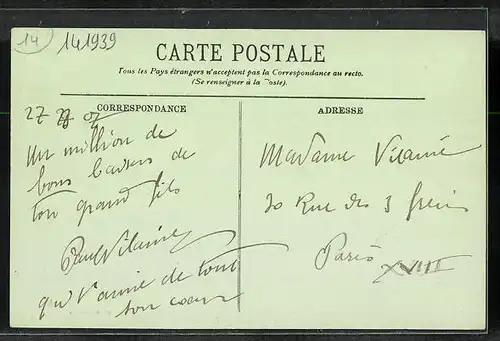 14
141939
CARTE POSTALE
Tous les Pays étrangers n'acceptent pas la Correspondance au recto.
(Se renseigner à la Poste).
CORRESPONDANCE
27 07
Un million de
bons baisers de
ton grand fils
Paul Vilainé
qui t'aime de tout
son coeur
ADRESSE
Madame Vilainé
30 Rue des 3 frères
Paris XVIII